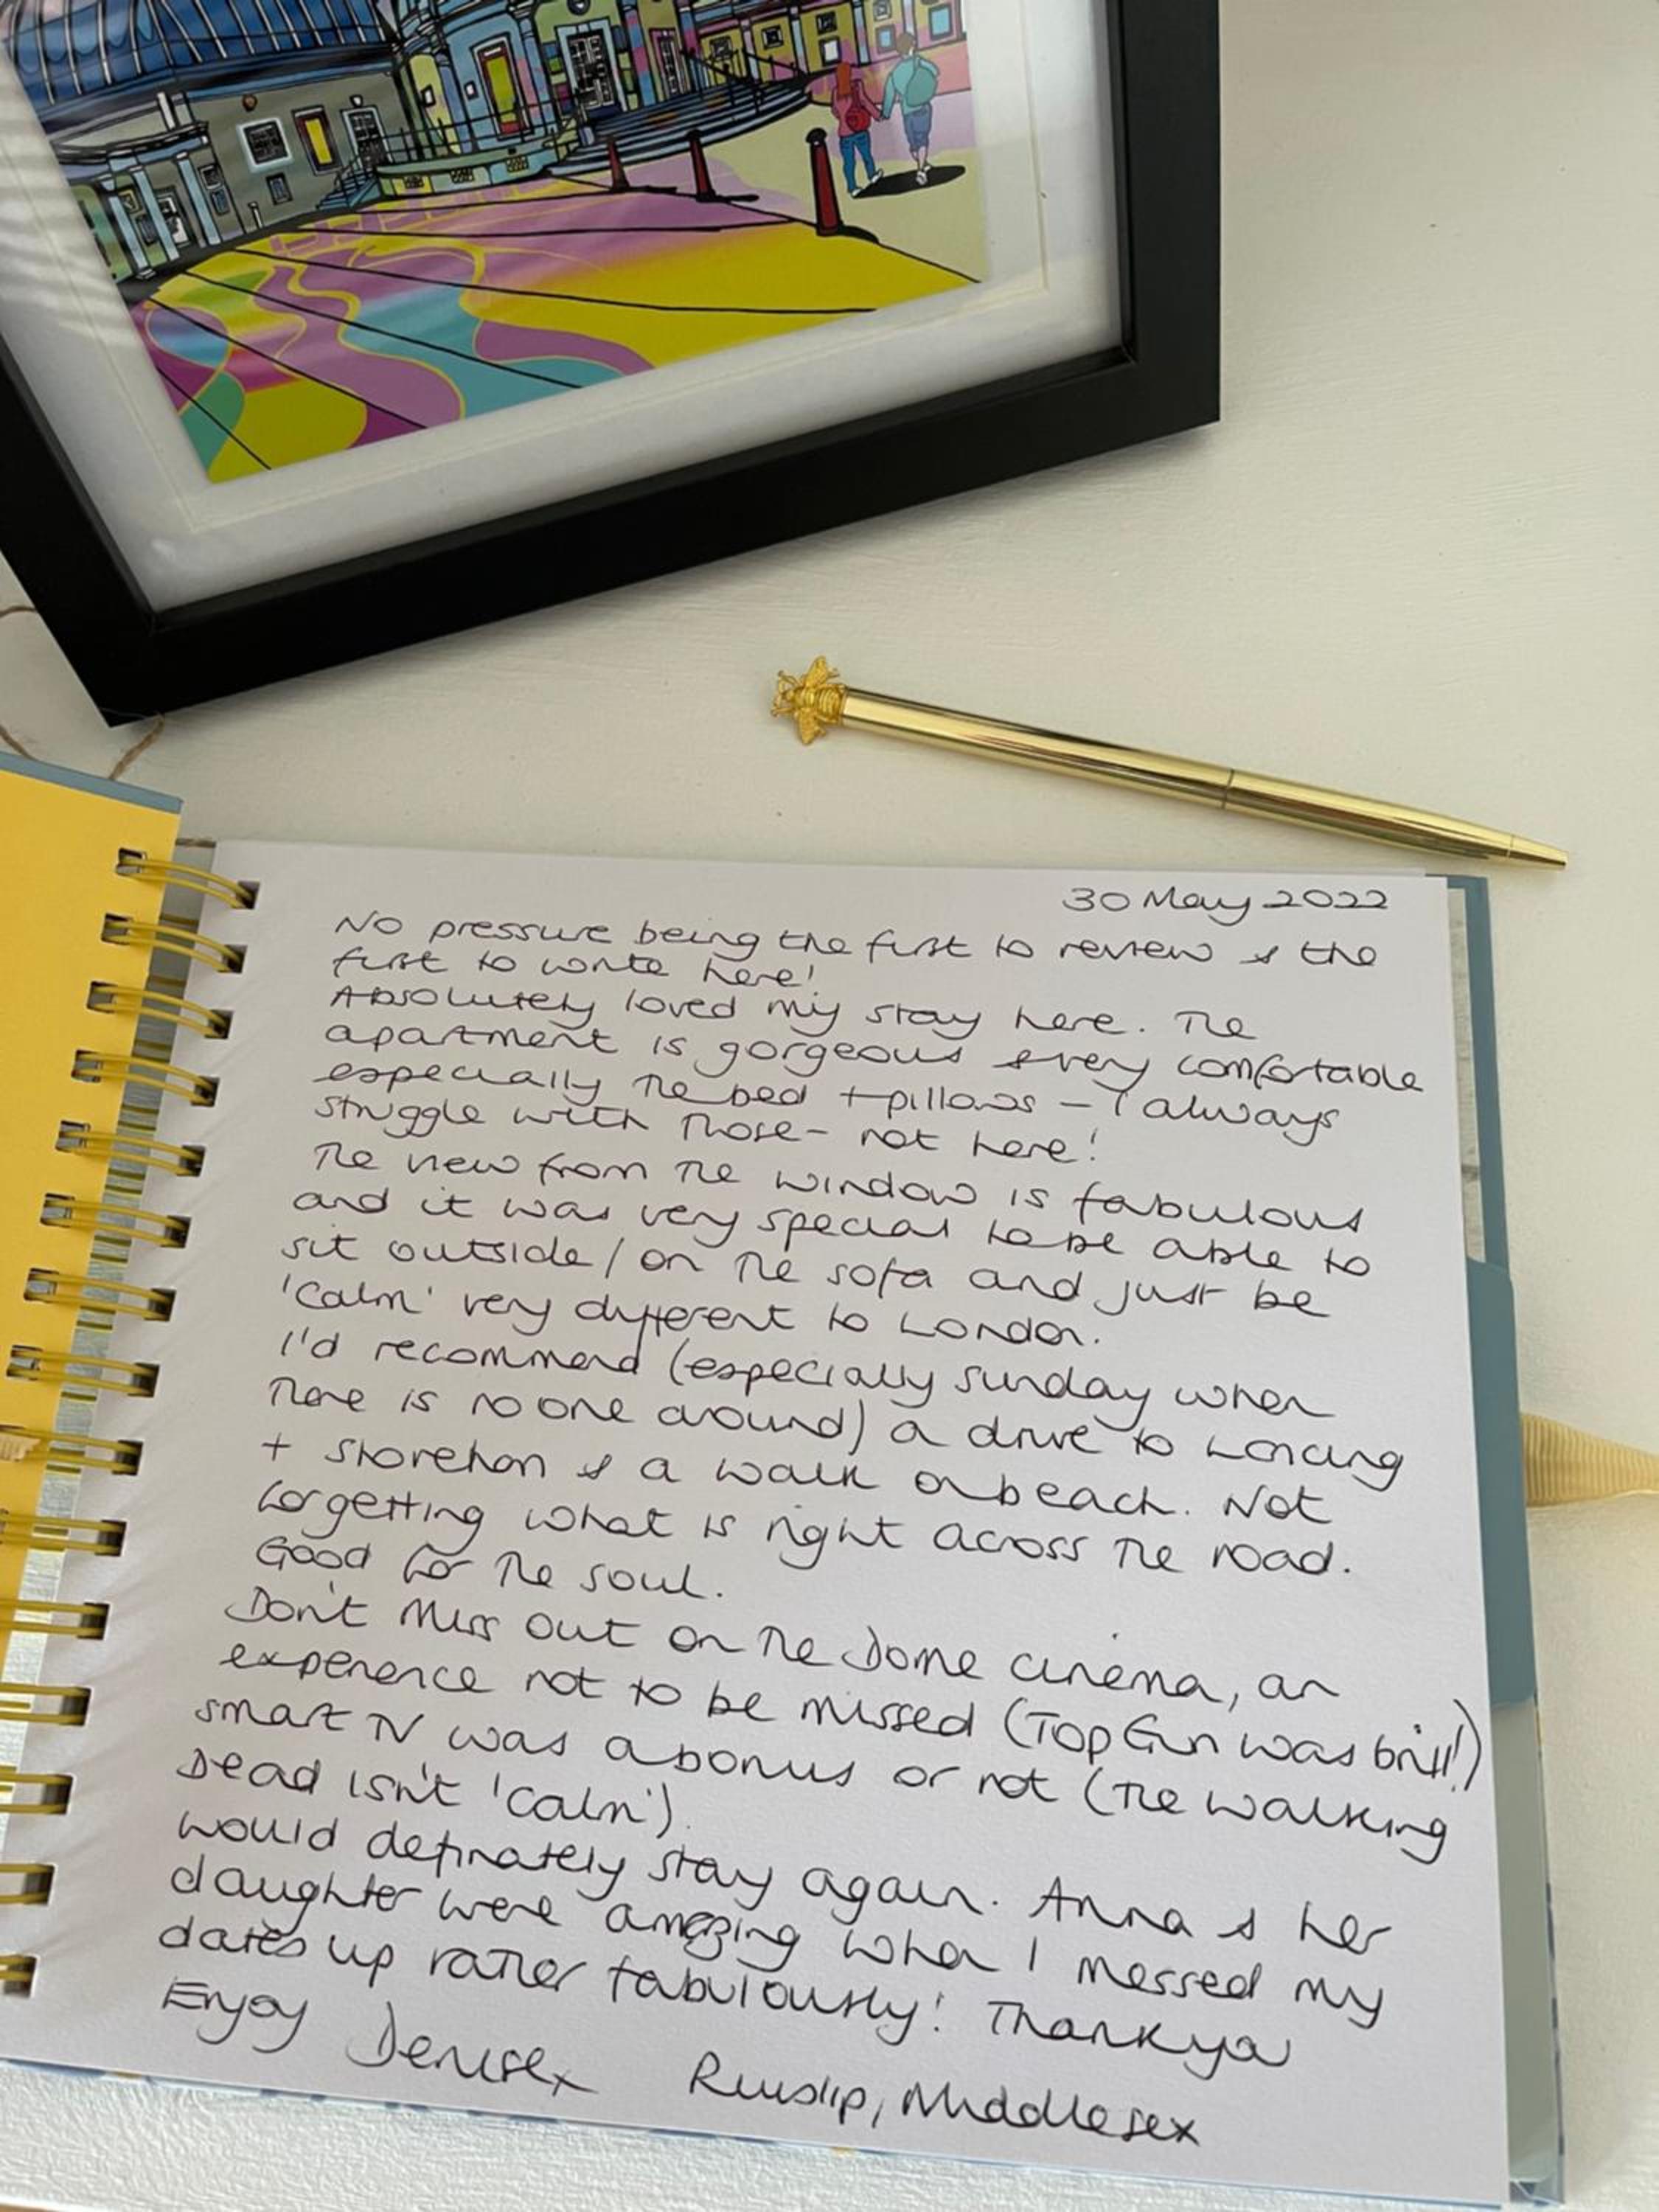 30 May 2022
No pressure being the first to review & the
first to write here!
Absolutely loved my stay here. The
apartment is gorgeous & very comfortable
especially the bed + pillows - I always
struggle with those - not here!
The view from the window is fabulous
and it was very special to be able to
sit outside / on the sofa and just be
'Calm' very different to London.
I'd recommend (especially Sunday when
there is no one around) a drive to Lancing
+ Shoreham & a walk on beach. Not
forgetting what is right across the road.
Good for the soul.
Don't Miss out on the Dome cinema, an
experience not to be missed (Top Gun was brill!)
smart TV was a bonus or not (The Walking
Dead isn't 'Calm').
Would definately stay again. Anna & her
daughter were amazing when I messed my
dates up rather fabulously! Thankyou
Enjoy Denise x Ruislip, Middlesex